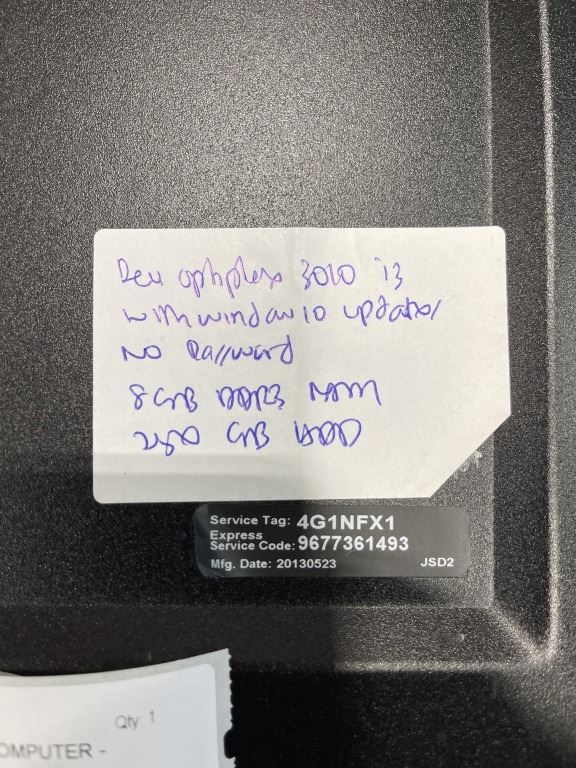 Dell optiplex 3010 i3
with window 10 updated
No Password
8 GB DDR3 RAM
250 GB HDD
Service Tag: 4G1NFX1
Express
Service Code: 9677361493
Mfg. Date: 20130523 JSD2
Qty: 1
OMPUTER -